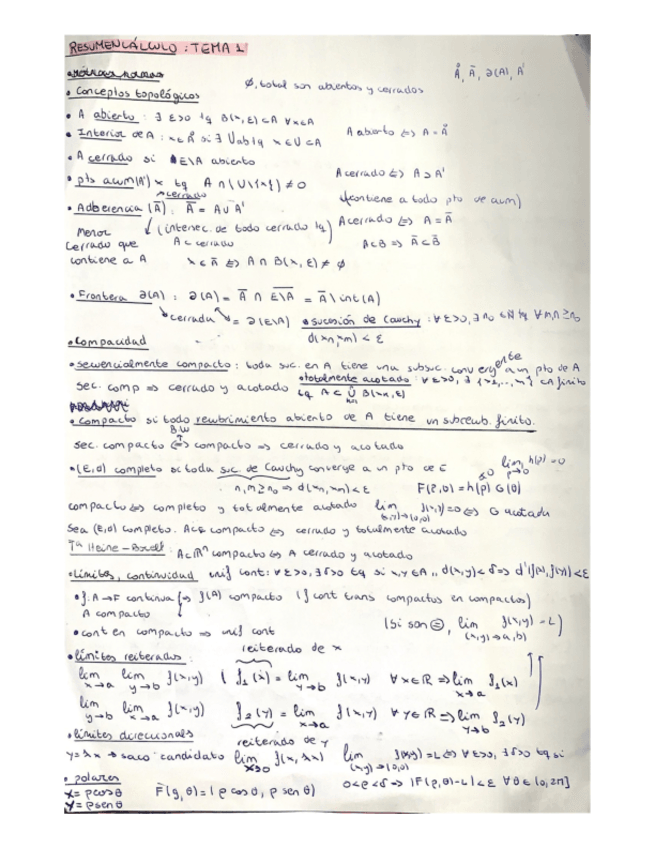 RESUMEN CÁLCULO : TEMA 1
Å, Ā, ∂(A), A'
• Conceptos topológicos
∅, total son abiertos y cerrados
• A abierto : ∃ ε>0 tq B(x,ε)⊂A ∀x∈A
• Interior de A : x∈Å si ∃ U ab tq x∈U⊂A
A abierto ⇔ A=Å
• A cerrado si E\A abierto
A cerrado ⇔ A⊃A'
• pts acum(A') x tq A∩(U\{x}) ≠ ∅
(contiene a todo pto de acum)
• Adherencia (Ā) : Ā = A∪A'
cerrado
Menor cerrado que contiene a A
(intersec. de todo cerrado tq A⊂cerrado)
A cerrado ⇔ A=Ā
A⊂B ⇒ Ā⊂B̄
x∈Ā ⇔ A∩B(x,ε) ≠ ∅
• Frontera ∂(A) : ∂(A) = Ā ∩ E\A = Ā \ int(A)
cerrada = ∂(E\A)
• sucesión de Cauchy : ∀ε>0, ∃ n₀∈ℕ tq ∀m,n≥n₀
d(xn,xm) < ε
• Compacidad
• sewencialmente compacto : toda suc. en A tiene una subsuc. convergente a un pto de A
sec. comp ⇒ cerrado y acotado
• totalmente acotado : ∀ε>0, ∃ {x₁,...,xn}⊂A finito
tq A⊂ ∪ B(xk,ε)
• compacto si todo recubrimiento abierto de A tiene un subrecub. finito.
B.W
sec. compacto ⇔ compacto ⇒ cerrado y acotado
• (E,d) completo si toda suc. de Cauchy converge a un pto de E
n,m≥n₀ ⇒ d(xn,xm)<ε
lim h(ρ)=0
ρ→0
F(ρ,θ)=h(ρ) G(θ)
compacto ⇔ completo y totalmente acotado
lim f(x,y)=0 ⇔ G acotada
(x,y)→(0,0)
Sea (E,d) completo. A⊂E compacto ⇔ cerrado y totalmente acotado
Tª Heine-Borel : A⊂ℝⁿ compacto ⇔ A cerrado y acotado
• Límites, continuidad unif cont: ∀ε>0, ∃δ>0 tq si x,y∈A,, d(x,y)<δ ⇒ d'(f(x),f(y))<ε
• f: A→F continua
A compacto
⇒ f(A) compacto (f cont trans compactos en compactos)
• cont en compacto ⇒ unif cont
(Si son =, lim f(x,y) = L)
(x,y)→(a,b)
reiterado de x
• límites reiterados:
lim lim f(x,y) ( f₁(x) = lim f(x,y) ∀x∈ℝ ⇒ lim f₁(x)
x→a y→b y→b x→a
lim lim f(x,y) f₂(y) = lim f(x,y) ∀y∈ℝ ⇒ lim f₂(y)
y→b x→a x→a y→b
reiterado de y
• límites direccionales
y=λx → saco candidato lim f(x,λx)
x→0
lim f(x,y)=L ⇔ ∀ε>0, ∃δ>0 tq si
(x,y)→(0,0)
0<ρ<δ ⇒ |F(ρ,θ)-L|<ε ∀θ∈[0,2π]
• polares
x = ρcosθ
y = ρsenθ
F(ρ,θ) = (ρ cosθ, ρ senθ)